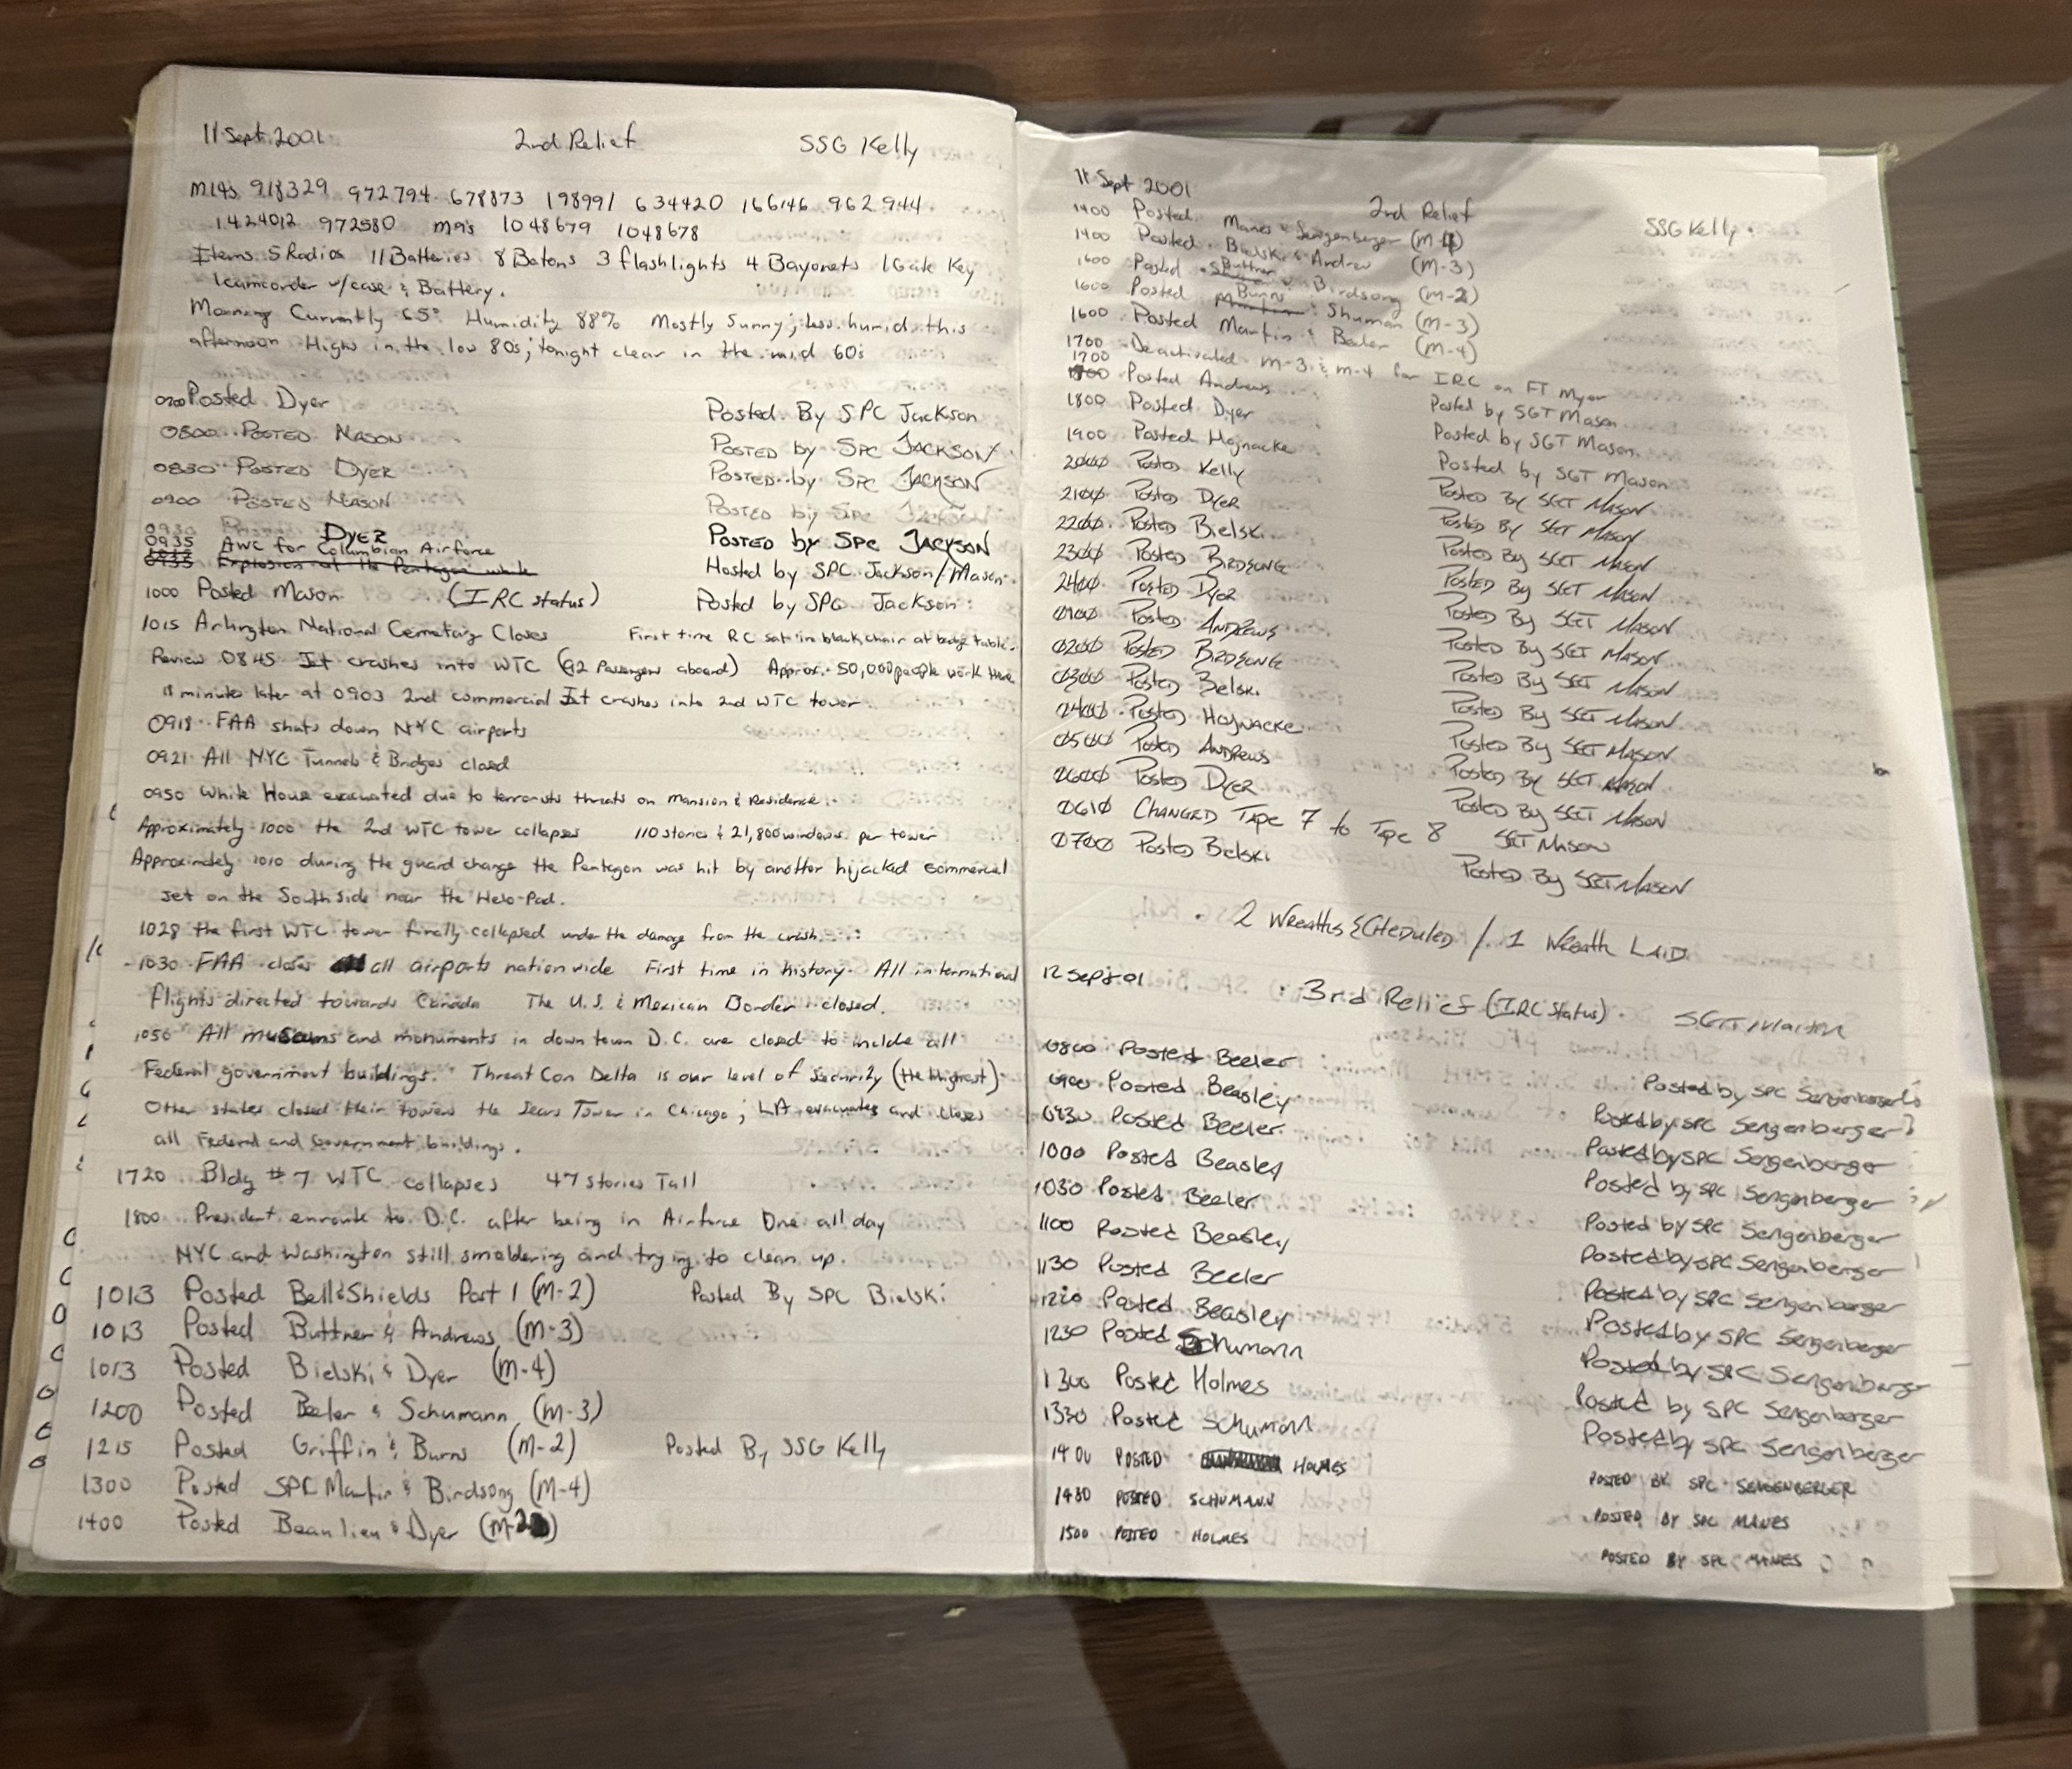 11 Sept. 2001 2nd Relief SSG Kelly
M14s 918329 972794 678873 198991 634420 166146 962944
1424012 972580 m9's 1048679 1048678
Items 5 Radios 11 Batteries 8 Batons 3 flashlights 4 Bayonets 1 Gate Key
1 camcorder w/case & Battery.
Morning Currently 65° Humidity 88% Mostly Sunny; less humid this
afternoon Highs in the low 80s; tonight clear in the mid 60s
0700 Posted Dyer Posted By SPC Jackson
0800 Posted Mason Posted by SPC Jackson
0830 Posted Dyer Posted by SPC Jackson
0900 Posted Mason Posted by SPC Jackson
0930 Dyer Posted by SPC Jackson
0935 AWC for Columbian Airforce Hosted by SPC Jackson/Mason
0935 Explosion at the Pentagon while
1000 Posted Mason (IRC status) Posted by SPC Jackson
1015 Arlington National Cemetary Closes First time RC sat in black chair at badge table.
Review 0845 Jet crashes into WTC (92 Passengers aboard) Approx. 50,000 people work there
18 minutes later at 0903 2nd commercial Jet crashes into 2nd WTC tower
0918 FAA shuts down NYC airports
0921 All NYC Tunnels & Bridges closed
0950 White House evacuated due to terrorists threats on Mansion & Residence
Approximately 1000 the 2nd WTC tower collapses 110 stories & 21,800 windows per tower
Approximately 1010 during the guard change the Pentagon was hit by another hijacked commercial
jet on the South side near the Helo-Pad.
1028 the first WTC tower finally collapsed under the damage from the crash.
1030 FAA closes all airports nationwide First time in history. All international
flights directed towards Canada The U.S. & Mexican Border closed.
1050 All museums and monuments in down town D.C. are closed to include all
Federal government buildings. ThreatCon Delta is our level of Security (the highest)
Other states closed their towers the Sears Tower in Chicago; LA evacuates and closes
all Federal and Government buildings.
1720 Bldg #7 WTC collapses 47 stories Tall
1800 President enroute to D.C. after being in Airforce One all day
NYC and Washington still smoldering and trying to clean up.
1013 Posted Bell & Shields Post 1 (M-2) Posted By SPC Bielski
1013 Posted Buttner & Andrews (M-3)
1013 Posted Bielski & Dyer (M-4)
1200 Posted Beeler & Schumann (M-3)
1215 Posted Griffin & Burns (M-2) Posted By SSG Kelly
1300 Posted SPC Martin & Birdsong (M-4)
1400 Posted Beaulieu & Dyer (M-2)
11 Sept 2001 2nd Relief SSG Kelly
1400 Posted Manes & Sengenberger (M-4)
1400 Posted Bielski & Andrew (M-3)
1600 Posted Buttner & Birdsong (M-2)
1600 Posted Burns & Shuman (M-3)
1600 Posted Martin & Beeler (M-4)
1700 Deactivated M-3 & M-4 for IRC on FT Myer
1700 Posted Andrews Posted by SGT Mason
1800 Posted Dyer Posted by SGT Mason
1900 Posted Hojnacke Posted by SGT Mason
2000 Posted Kelly Posted By SGT Mason
2100 Posted Dyer Posted By SGT Mason
2200 Posted Bielski Posted By SGT Mason
2300 Posted Birdsong Posted By SGT Mason
2400 Posted Dyer Posted By SGT Mason
0100 Posted Andrews Posted By SGT Mason
0200 Posted Birdsong Posted By SGT Mason
0300 Posted Bielski Posted By SGT Mason
0400 Posted Hojnacke Posted By SGT Mason
0500 Posted Andrews Posted By SGT Mason
0600 Posted Dyer Posted By SGT Mason
0610 Changed Tape 7 to Tape 8 SGT Mason
0700 Posted Bielski Posted By SGT Mason
2 Wreaths Scheduled / 1 Wreath Laid
12 Sept 01 3rd Relief (IRC Status) SGT Martin
0800 Posted Beeler Posted by SPC Sengenberger
0900 Posted Beasley Posted by SPC Sengenberger
0930 Posted Beeler Posted by SPC Sengenberger
1000 Posted Beasley Posted by SPC Sengenberger
1030 Posted Beeler Posted by SPC Sengenberger
1100 Posted Beasley Posted by SPC Sengenberger
1130 Posted Beeler Posted by SPC Sengenberger
1200 Posted Beasley Posted by SPC Sengenberger
1230 Posted Schumann Posted by SPC Sengenberger
1300 Posted Holmes Posted by SPC Sengenberger
1330 Posted Schumann Posted by SPC Sengenberger
1400 Posted Holmes Posted by SPC Sengenberger
1430 Posted Schumann Posted by SPC Manes
1500 Posted Holmes Posted by SPC Manes